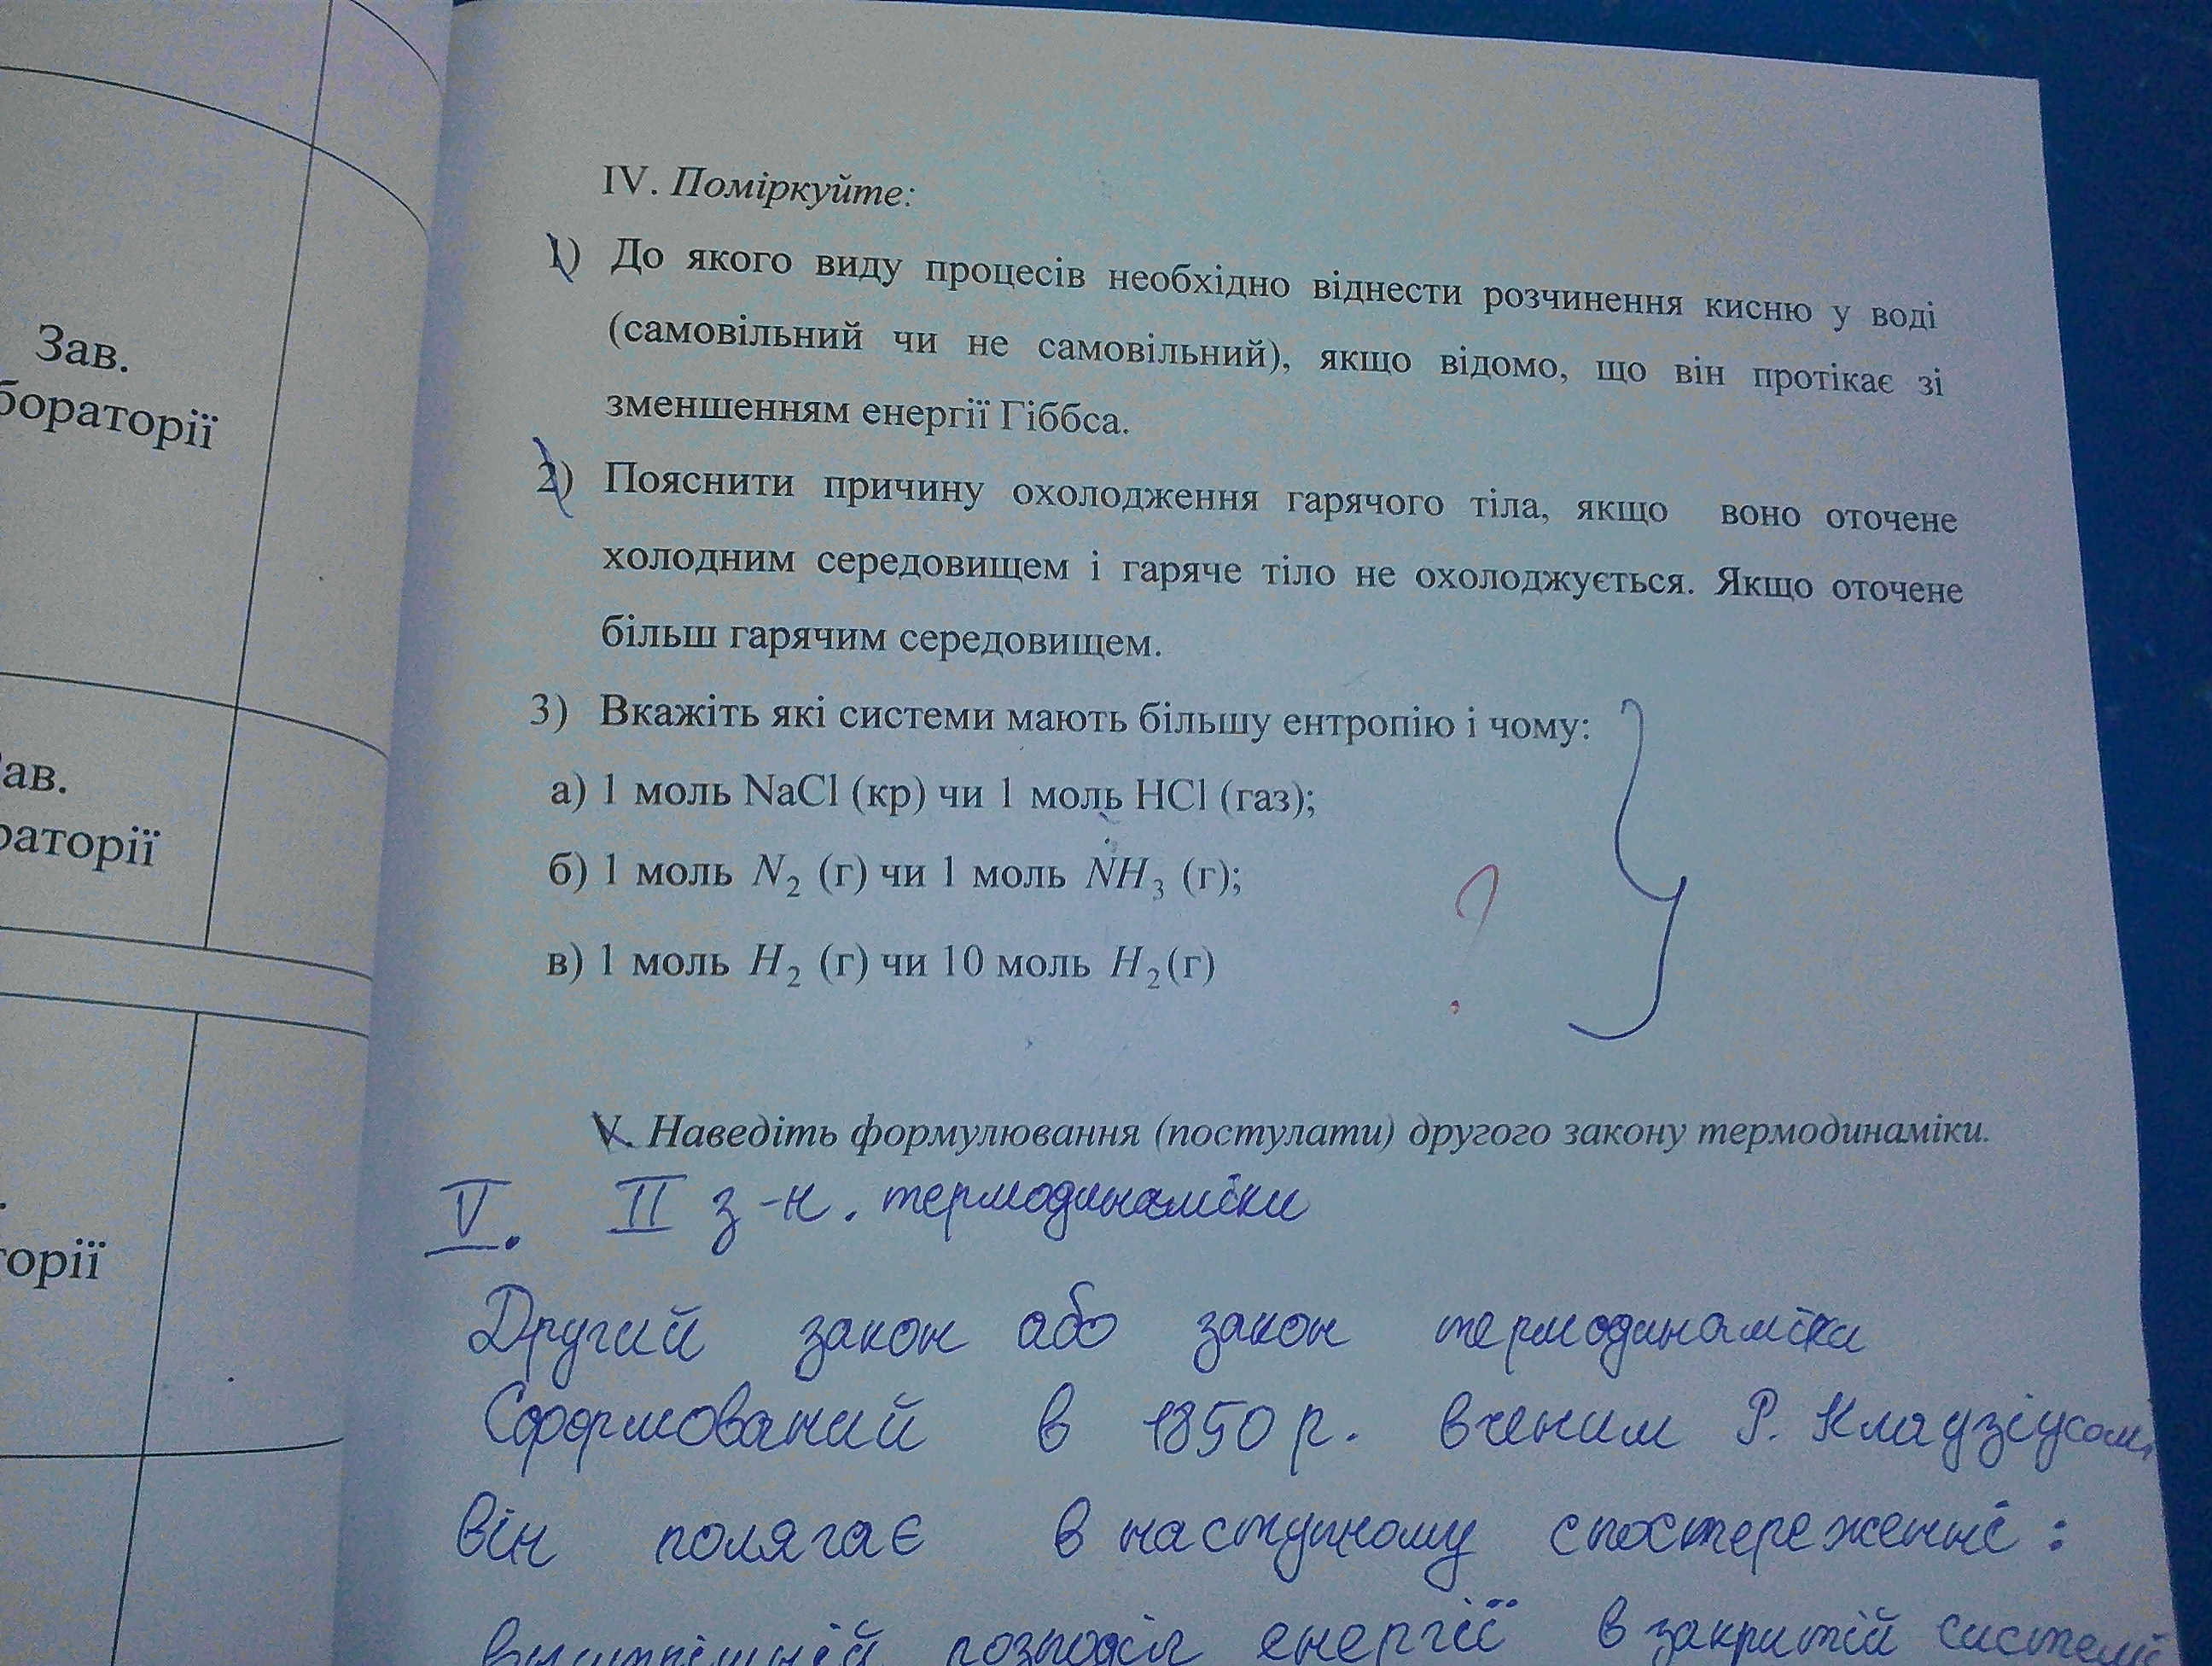 Зав.
бораторії
ав.
раторії
торії
IV. Поміркуйте:
1) До якого виду процесів необхідно віднести розчинення кисню у воді
(самовільний чи не самовільний), якщо відомо, що він протікає зі
зменшенням енергії Гіббса.
2) Пояснити причину охолодження гарячого тіла, якщо воно оточене
холодним середовищем і гаряче тіло не охолоджується. Якщо оточене
більш гарячим середовищем.
3) Вкажіть які системи мають більшу ентропію і чому:
а) 1 моль NaCl (кр) чи 1 моль HCl (газ);
б) 1 моль N₂ (г) чи 1 моль NH₃ (г);
?
в) 1 моль H₂ (г) чи 10 моль H₂(г)
V. Наведіть формулювання (постулати) другого закону термодинаміки.
V. II з-н. термодинаміки
Другий закон або закон термодинаміки
Сформований в 1850 р. вченим Р. Клаузіусом,
він полягає в наступному спостереженні:
розподіл енергії в закритій системі